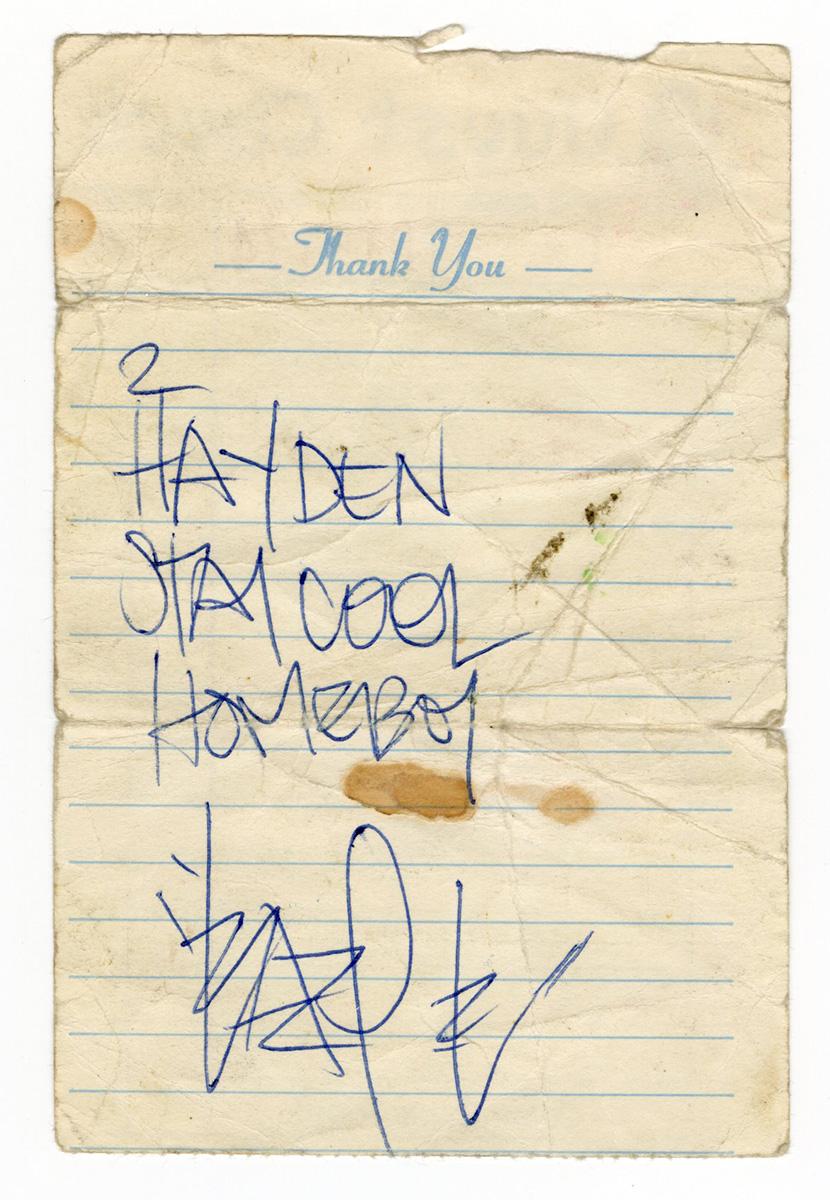 Thank You
2
HAYDEN
STAY COOL
HOMEBOY